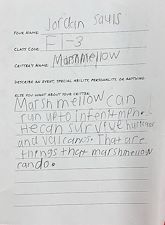 YOUR NAME: Jordan Sauls
CLASS CODE: F1-3
CRITTER'S NAME: Marshmellow
DESCRIBE AN EVENT, SPECIAL ABILITY, PERSONALITY, OR ANYTHING
ELSE YOU WANT ABOUT YOUR CRITTER:
Marshmellow can
run up to
He can survive
and valcanos. That are
things that marshmellow
can do.